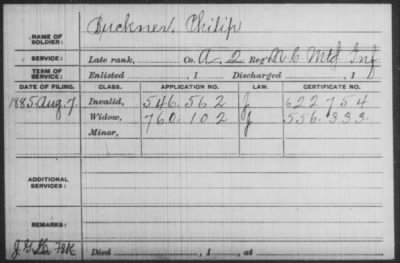 NAME OF SOLDIER: Buckner, Philip
SERVICE: Late rank, Co. A. 2 Reg't N.C. Mtd Inf
TERM OF SERVICE: Enlisted , 1 Discharged , 1
DATE OF FILING. CLASS. APPLICATION NO. LAW. CERTIFICATE NO.
1885 Aug. 7. Invalid, 546.562 J 622.754
Widow, 760.102 J 556.333.
Minor,
ADDITIONAL SERVICES:
REMARKS:
Died , 1 , at